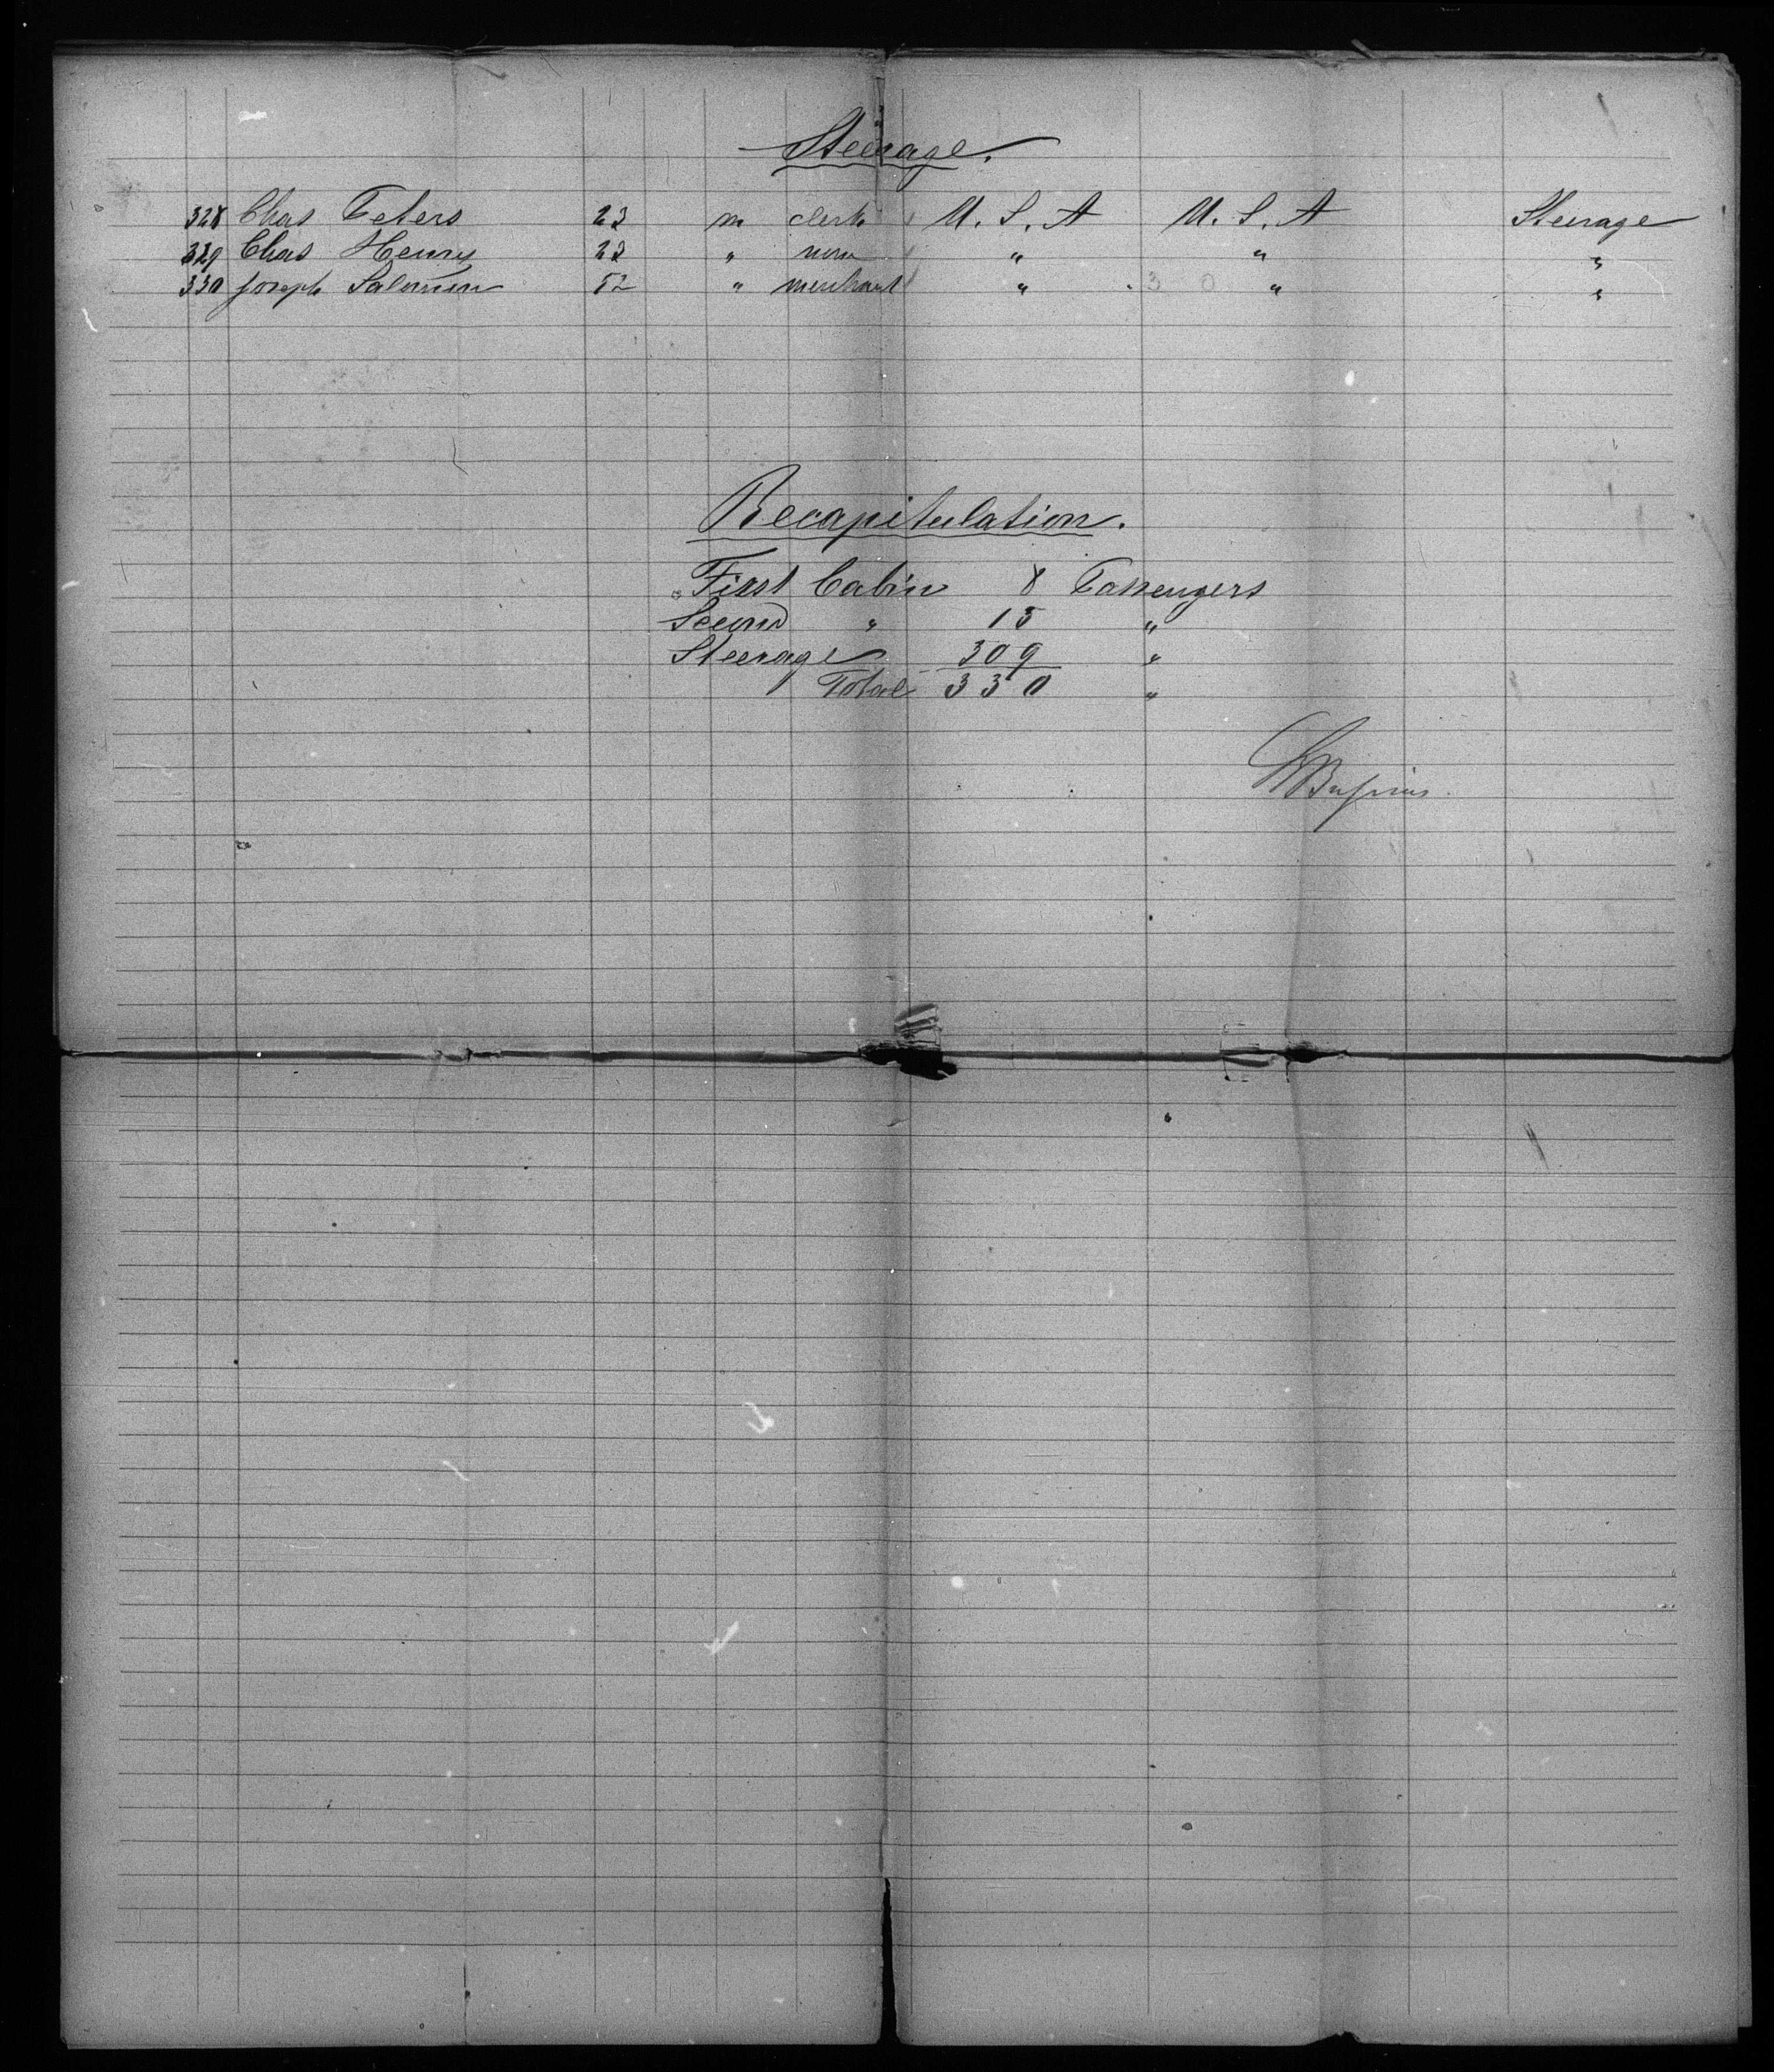 Steerage.
328 Chas Peters 23 m clerk U. S. A U. S. A Steerage
329 Chas Henry 23 " none " " "
330 Joseph Salomon 52 " merchant " " "
Recapitulation.
First Cabin 8 Passengers
Second " 13 "
Steerage 309 "
Total 330 "